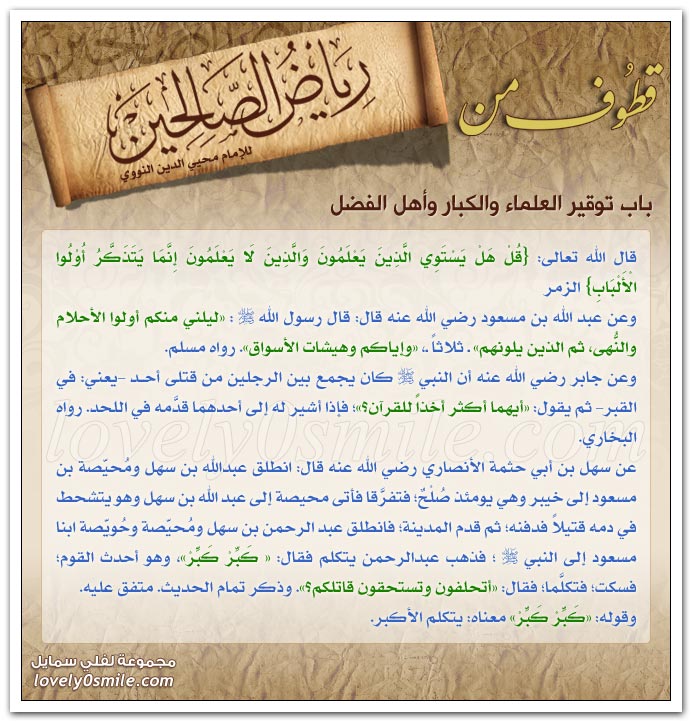 قطوف من
رياض الصالحين
للإمام محيي الدين النووي
باب توقير العلماء والكبار وأهل الفضل
قال الله تعالى: {قُلْ هَلْ يَسْتَوِي الَّذِينَ يَعْلَمُونَ وَالَّذِينَ لَا يَعْلَمُونَ إِنَّمَا يَتَذَكَّرُ أُوْلُوا
الْأَلْبَابِ} الزمر
وعن عبد الله بن مسعود رضي الله عنه قال: قال رسول الله ﷺ : «ليلني منكم أولوا الأحلام
والنُّهى، ثم الذين يلونهم» . ثلاثاً .، «وإياكم وهيشات الأسواق». رواه مسلم.
وعن جابر رضي الله عنه أن النبي ﷺ كان يجمع بين الرجلين من قتلى أحد –يعني: في
القبر– ثم يقول: «أيهما أكثر أخذاً للقرآن؟»؛ فإذا أشير له إلى أحدهما قدَّمه في اللحد. رواه
البخاري.
عن سهل بن أبي حثمة الأنصاري رضي الله عنه قال: انطلق عبدالله بن سهل ومُحيّصة بن
مسعود إلى خيبر وهي يومئذ صُلْحٌ؛ فتفرَّقا فأتى محيصة إلى عبد الله بن سهل وهو يتشحط
في دمه قتيلاً فدفنه؛ ثم قدم المدينة؛ فانطلق عبد الرحمن بن سهل ومُحيّصة وحُويّصة ابنا
مسعود إلى النبي ﷺ ؛ فذهب عبدالرحمن يتكلم فقال: « كَبِّرْ كَبِّرْ»، وهو أحدث القوم؛
فسكت؛ فتكلَّما؛ فقال: «أتحلفون وتستحقون قاتلكم؟». وذكر تمام الحديث. متفق عليه.
وقوله: «كَبِّرْ كَبِّرْ» معناه: يتكلم الأكبر.
lovely0smile.com
مجموعة لفلي سمايل
lovely0smile.com